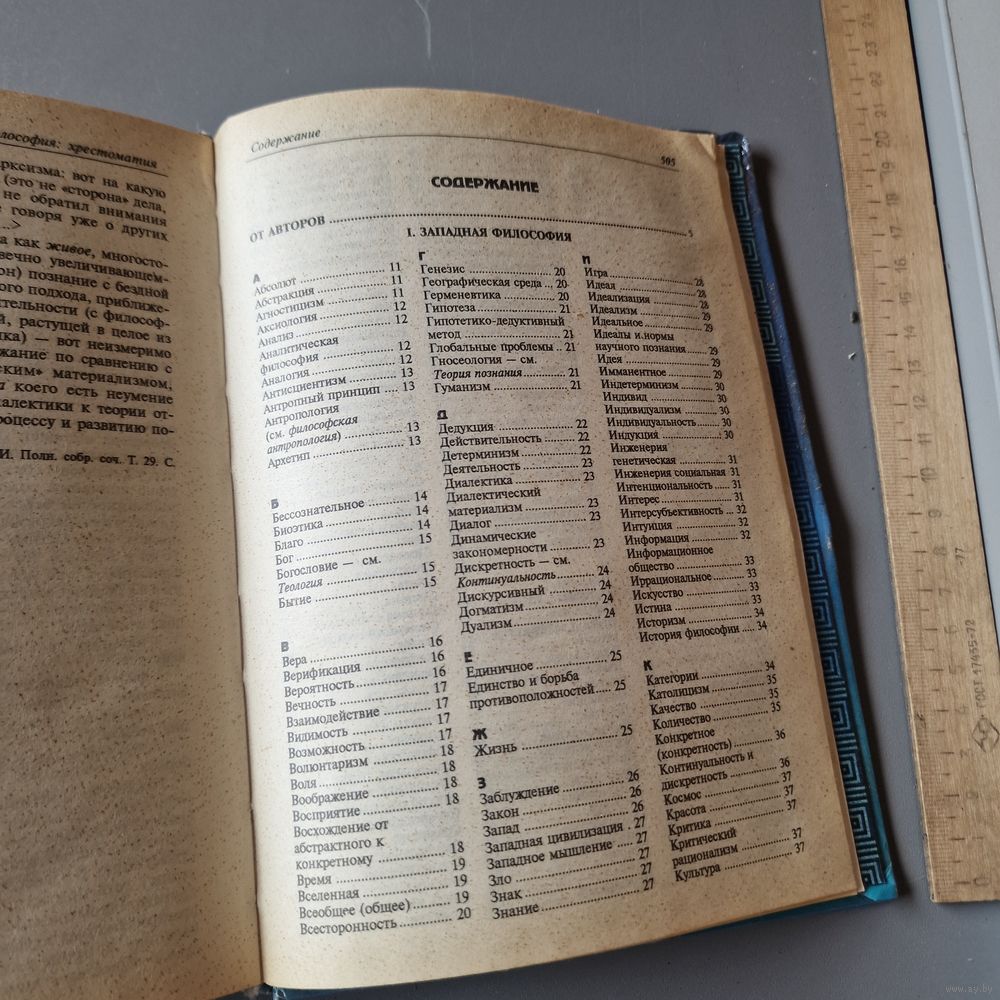 лософия: хрестоматия
рксизма: вот на какую
(это не «сторона» дела,
не обратил внимания
е говоря уже о других
...>
а как живое, многосто-
вечно увеличивающем-
он) познание с бездной
ого подхода, приближе-
ительности (с философ-
й, растущей в целое из
ика) — вот неизмеримо
жание по сравнению с
ским» материализмом,
а коего есть неумение
алектики к теории от-
роцессу и развитию по-
И. Полн. собр. соч. Т. 29. С.
Содержание
505
СОДЕРЖАНИЕ
ОТ АВТОРОВ 5
I. ЗАПАДНАЯ ФИЛОСОФИЯ
А
Абсолют 11
Абстракция 11
Агностицизм 11
Аксиология 12
Анализ 12
Аналитическая
философия 12
Аналогия 12
Антисциентизм 13
Антропный принцип 13
Антропология
(см. философская
антропология) 13
Архетип 13
Б
Бессознательное 14
Биоэтика 14
Благо 14
Бог 15
Богословие — см.
Теология 15
Бытие 15
В
Вера 16
Верификация 16
Вероятность 16
Вечность 17
Взаимодействие 17
Видимость 17
Возможность 17
Волюнтаризм 18
Воля 18
Воображение 18
Восприятие 18
Восхождение от
абстрактного к
конкретному 18
Время 19
Вселенная 19
Всеобщее (общее) 19
Всесторонность 20
Г
Генезис 20
Географическая среда 20
Герменевтика 20
Гипотеза 21
Гипотетико-дедуктивный
метод 21
Глобальные проблемы 21
Гносеология — см.
Теория познания 21
Гуманизм 21
Д
Дедукция 22
Действительность 22
Детерминизм 22
Деятельность 23
Диалектика 23
Диалектический
материализм 23
Диалог 23
Динамические
закономерности 23
Дискретность — см.
Континуальность 24
Дискурсивный 24
Догматизм 24
Дуализм 24
Е
Единичное 25
Единство и борьба
противоположностей 25
Ж
Жизнь 25
З
Заблуждение 26
Закон 26
Запад 26
Западная цивилизация 27
Западное мышление 27
Зло 27
Знак 27
Знание 27
И
Игра 28
Идеал 28
Идеализация 28
Идеализм 29
Идеальное 29
Идеалы и нормы
научного познания 29
Идея 29
Имманентное 29
Индетерминизм 30
Индивид 30
Индивидуализм 30
Индивидуальность 30
Индукция 30
Инженерия
генетическая 31
Инженерия социальная 31
Интенциональность 31
Интерес 31
Интерсубъективность 32
Интуиция 32
Информация 32
Информационное
общество 33
Иррациональное 33
Искусство 33
Истина 33
Историзм 34
История философии 34
К
Категории 34
Католицизм 35
Качество 35
Количество 35
Конкретное
(конкретность) 36
Континуальность и
дискретность 36
Космос 37
Красота 37
Критика 37
Критический
рационализм 37
Культура 37
ГОСТ 17435-72
www.ay.by